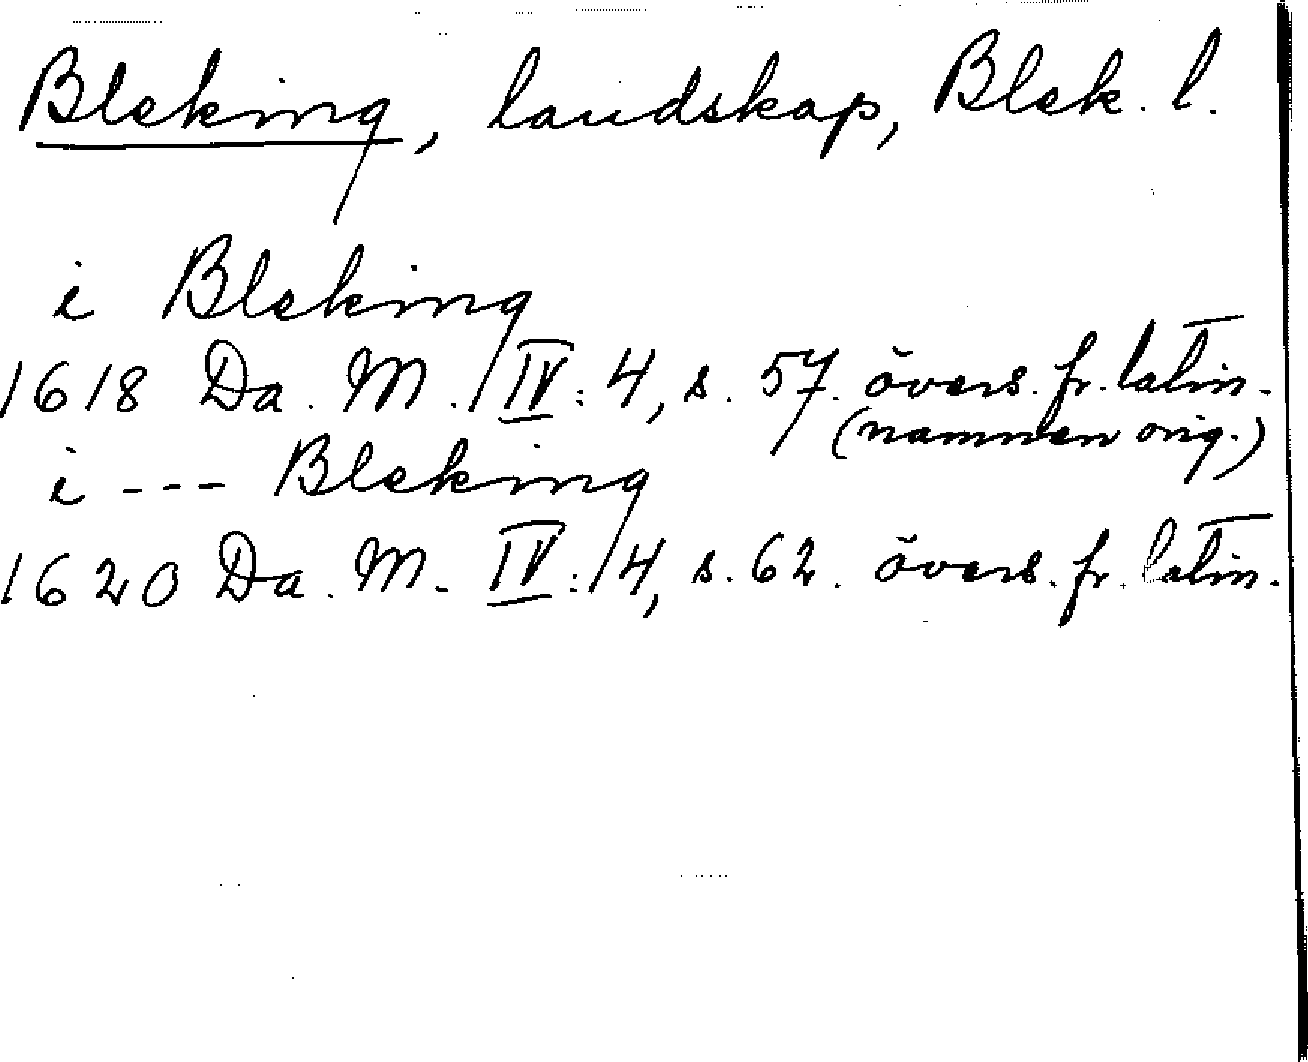 Bleking, landskap, Blek. l.
i Bleking
1618 Da. M. IV: 4, s. 57. övers. fr. latin.
(namnen orig.)
i --- Bleking
1620 Da. M. IV: 4, s. 62. övers. fr. latin.